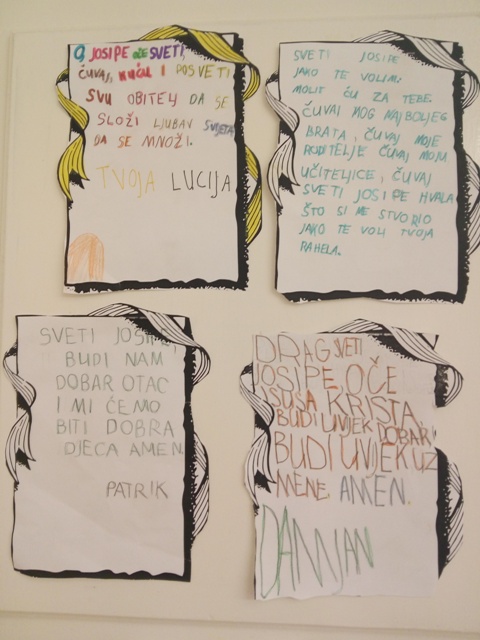 O JOSIPE OČE SVETI,
ČUVAJ, KUĆU I POSVETI
SVU OBITELJ DA SE
SLOŽI LJUBAV SVIJETA
DA SE MNOŽI.
TVOJA LUCIJA
SVETI JOSIPE
JAKO TE VOLIM.
MOLIT ĆU ZA TEBE.
ČUVAJ MOG NAJBOLJEG
BRATA, ČUVAJ MOJE
RODITELJE ČUVAJ MOJU
UČITELJICE, ČUVAJ
SVETI JOSIPE HVALA
ŠTO SI ME STVORIO
JAKO TE VOLI TVOJA
RAHELA.
SVETI JOSIPE
BUDI NAM
DOBAR OTAC
I MI ĆEMO
BITI DOBRA
DJECA AMEN.
PATRIK
DRAG SVETI
JOSIPE, OČE
ISUSA KRISTA
BUDI UVIJEK DOBAR I
BUDI UVIJEK UZ
MENE AMEN.
DAMJAN